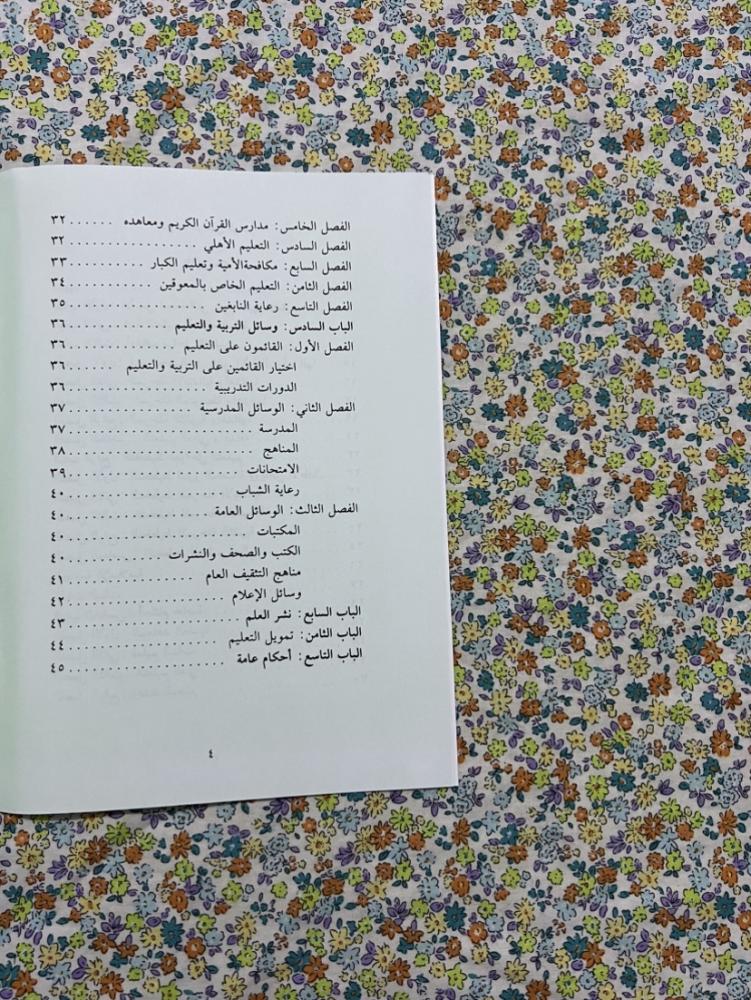 الفصل الخامس: مدارس القرآن الكريم ومعاهده ...... ٣٢
الفصل السادس: التعليم الأهلي .................. ٣٢
الفصل السابع: مكافحة الأمية وتعليم الكبار ........ ٣٣
الفصل الثامن: التعليم الخاص بالمعوقين ........... ٣٤
الفصل التاسع: رعاية النابغين ................... ٣٥
الباب السادس: وسائل التربية والتعليم ............. ٣٦
الفصل الأول: القائمون على التعليم .............. ٣٦
اختيار القائمين على التربية والتعليم ....... ٣٦
الدورات التدريبية ..................... ٣٦
الفصل الثاني: الوسائل المدرسية ................. ٣٧
المدرسة ........................... ٣٧
المناهج ........................... ٣٨
الامتحانات ......................... ٣٩
رعاية الشباب ....................... ٤٠
الفصل الثالث: الوسائل العامة ................... ٤٠
المكتبات ........................... ٤٠
الكتب والصحف والنشرات .............. ٤٠
مناهج التثقيف العام .................. ٤١
وسائل الإعلام ....................... ٤٢
الباب السابع: نشر العلم ....................... ٤٣
الباب الثامن: تمويل التعليم ..................... ٤٤
الباب التاسع: أحكام عامة ...................... ٤٥
٤